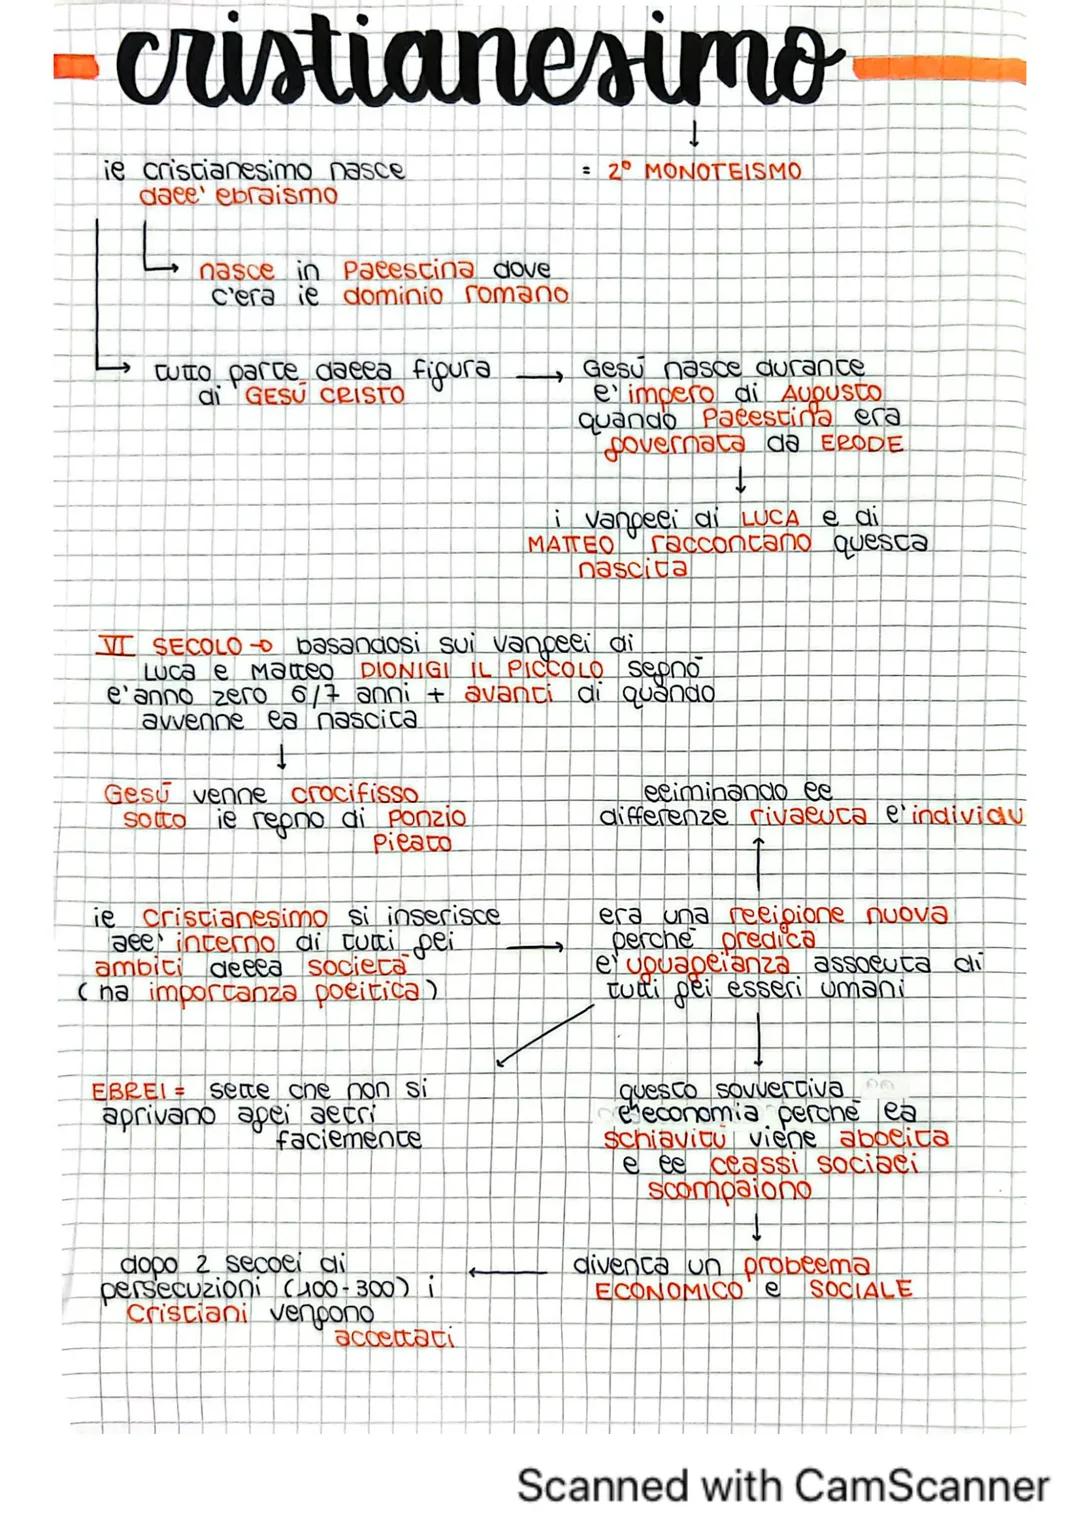 cristianesimo
il cristianesimo nasce
dall' ebraismo
= 2° MONOTEISMO
nasce in Palestina dove
c'era il dominio romano
tutto parte dalla figura
di GESÙ CRISTO
Gesù nasce durante
l'impero di AUGUSTO
quando Palestina era
governata da ERODE
i vangeli di LUCA e di
MATTEO raccontano questa
nascita
VI SECOLO → basandosi sui vangeli di
Luca e Matteo DIONIGI IL PICCOLO segnò
l'anno zero 6/7 anni + avanti di quando
avvenne la nascita
Gesù venne crocifisso
sotto il regno di Ponzio
Pilato
eliminando le
differenze rivaluta l'individu
il cristianesimo si inserisce
all' interno di tutti gli
ambiti della società
(ha importanza politica)
era una religione nuova
perché predica
l'uguaglianza assoluta di
tutti gli esseri umani
EBREI = sette che non si
aprivano agli altri
facilmente
questo sovvertiva
l'economia perché la
schiavitù viene abolita
e le classi sociali
scompaiono
dopo 2 secoli di
persecuzioni (100-300) i
Cristiani vengono
accettati
diventa un problema
ECONOMICO e SOCIALE
Scanned with CamScanner